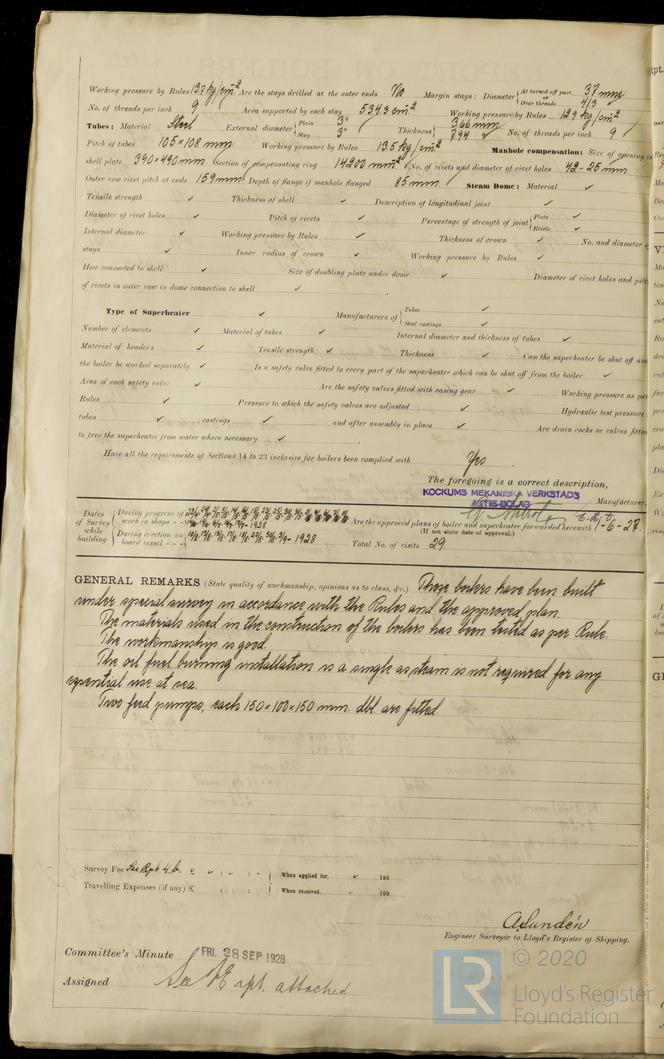 Working pressure by Rules 13.7 kg/cm² Are the stays drilled at the outer ends No Margin stays: Diameter { At turned off part, or Over threads 37 mm
No. of threads per inch 9 Area supported by each stay 534.3 cm² Working pressure by Rules 12.9 kg/cm²
Tubes: Material Steel External diameter { Plain 3" Stay 3" Thickness { 3.66 mm 7.94 ✓ No. of threads per inch 9
Pitch of tubes 105 × 108 mm Working pressure by Rules 13.5 kg/cm² Manhole compensation: Size of opening in
shell plate 390 × 490 mm Section of compensating ring 14200 mm² No. of rivets and diameter of rivet holes 42 - 25 mm
Outer row rivet pitch at ends 159 mm Depth of flange if manhole flanged 85 mm Steam Dome: Material ✓
Tensile strength ✓ Thickness of shell ✓ Description of longitudinal joint ✓
Diameter of rivet holes ✓ Pitch of rivets ✓ Percentage of strength of joint { Plate ✓ Rivets ✓
Internal diameter ✓ Working pressure by Rules ✓ Thickness of crown ✓ No. and diameter
stays ✓ Inner radius of crown ✓ Working pressure by Rules ✓
How connected to shell ✓ Size of doubling plate under dome ✓ Diameter of rivet holes and pitch
of rivets in outer row in dome connection to shell ✓
Type of Superheater ✓ Manufacturers of { Tubes ✓ Steel castings ✓
Number of elements ✓ Material of tubes ✓ Internal diameter and thickness of tubes ✓
Material of headers ✓ Tensile strength ✓ Thickness ✓ Can the superheater be shut off and
the boiler be worked separately ✓ Is a safety valve fitted to every part of the superheater which can be shut off from the boiler ✓
Area of each safety valve ✓ Are the safety valves fitted with easing gear ✓ Working pressure as per
Rules ✓ Pressure to which the safety valves are adjusted ✓ Hydraulic test pressure
tubes ✓ , castings ✓ and after assembly in place ✓ Are drain cocks or valves fitted
to free the superheater from water where necessary ✓
Have all the requirements of Sections 14 to 23 inclusive for boilers been complied with Yes
The foregoing is a correct description,
KOCKUMS MEKANISKA VERKSTADS
AKTIE-BOLAG Manufacturer.
Dates of Survey while building { During progress of work in shops - - 1928
During erection on board vessel - - - 1928
Are the approved plans of boiler and superheater forwarded herewith 1-6-27.
(If not state date of approval.)
Total No. of visits 29
GENERAL REMARKS (State quality of workmanship, opinions as to class, &c.) These boilers have been built
under special survey in accordance with the Rules and the approved plan.
The materials used in the construction of the boilers has been tested as per Rule.
The workmanship is good.
The oil fuel burning installation is a single as steam is not required for any
essential use at sea.
Two feed pumps, each 150 × 100 × 150 mm. dbl. are fitted.
Survey Fee See Rpt 4.b. £ : : When applied for, ✓ 192
Travelling Expenses (if any) £ : : When received, ✓ 192
A Lundén
Engineer Surveyor to Lloyd's Register of Shipping.
Committee's Minute FRI. 28 SEP 1928
Assigned See rpt. attached
© 2020
LR Lloyd's Register
Foundation